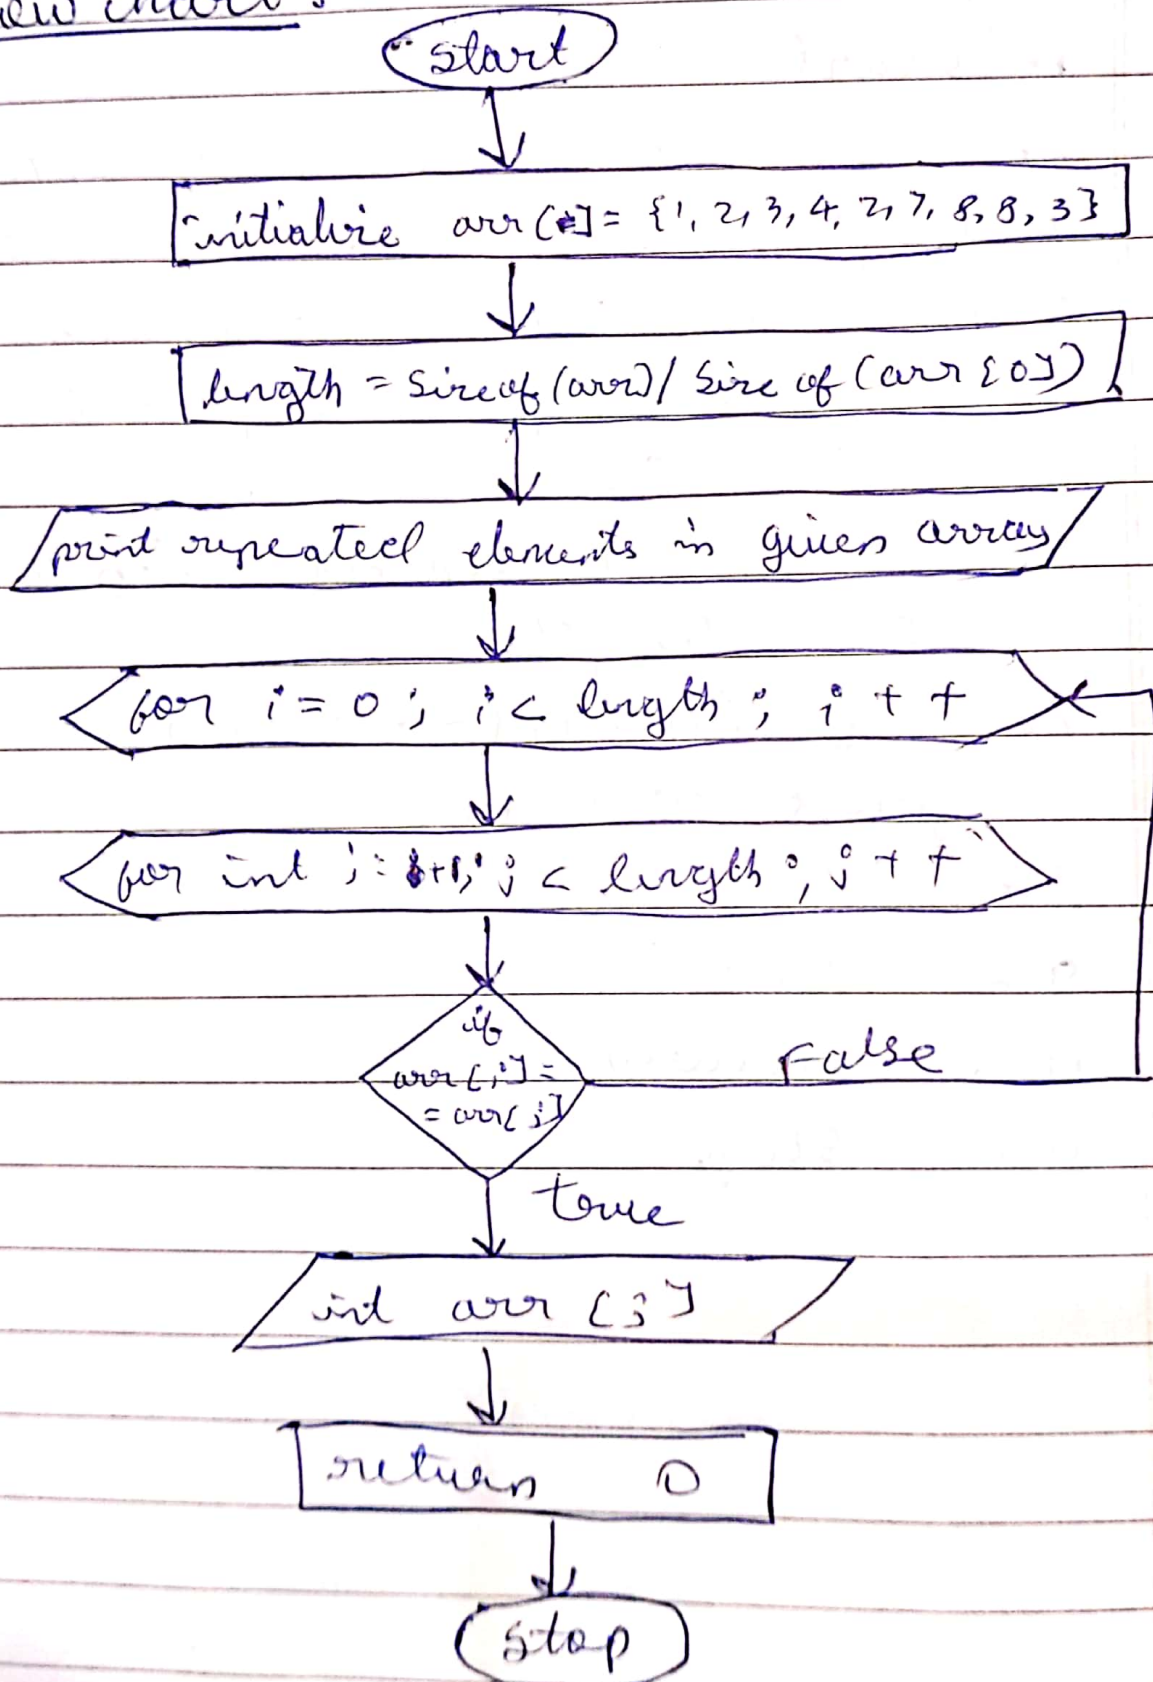 start
initialize arr[]= {1, 2, 3, 4, 2, 7, 8, 8, 3}
length = Sizeof(arr)/ Size of (arr[0])
print repeated elements in given array
for i = 0 ; i < length ; i + +
for int j = i+1; j < length ; j + +
if
arr[i] =
= arr[j]
False
true
int arr [j]
return 0
stop